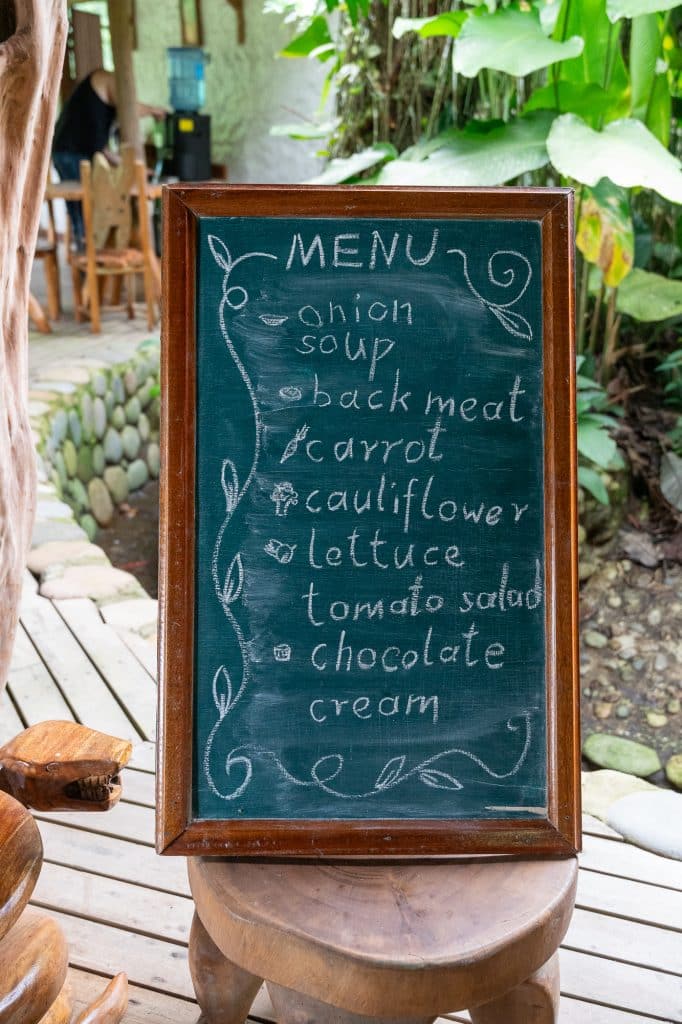 MENU
onion
soup
back meat
carrot
cauliflower
lettuce
tomato salad
chocolate
cream